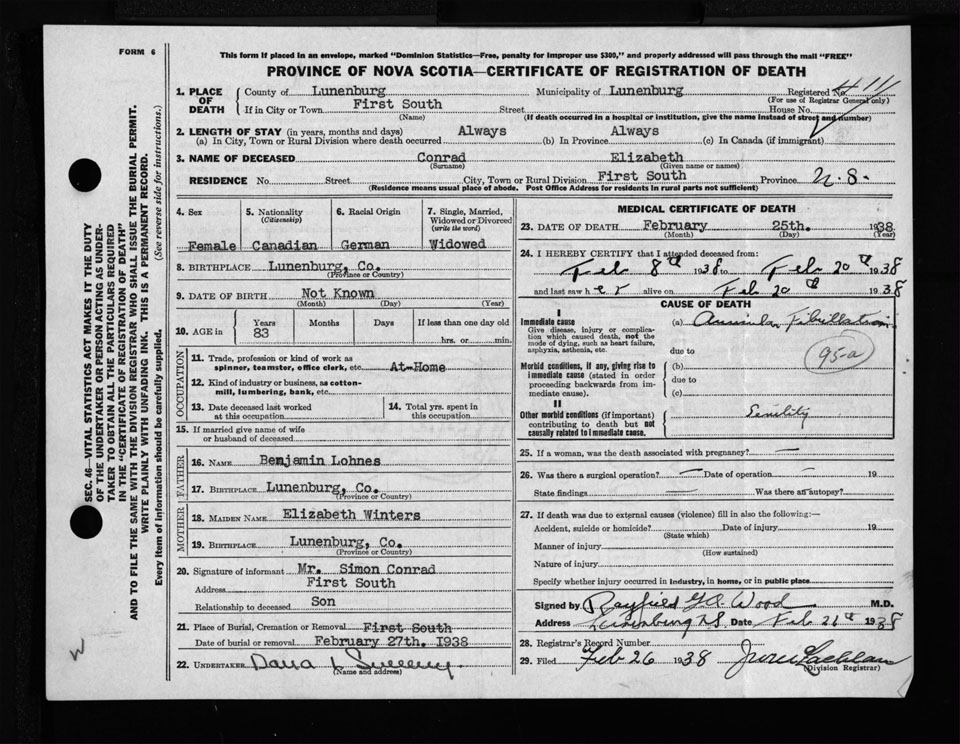 FORM 6
This form if placed in an envelope, marked "Dominion Statistics—Free, penalty for improper use $300," and properly addressed will pass through the mail "FREE"
PROVINCE OF NOVA SCOTIA—CERTIFICATE OF REGISTRATION OF DEATH
SEC. 46—VITAL STATISTICS ACT MAKES IT THE DUTY
OF THE UNDERTAKER OR PERSON ACTING AS UNDER-
TAKER TO OBTAIN ALL THE PARTICULARS REQUIRED
IN THE "CERTIFICATE OF REGISTRATION OF DEATH"
AND TO FILE THE SAME WITH THE DIVISION REGISTRAR WHO SHALL ISSUE THE BURIAL PERMIT.
WRITE PLAINLY WITH UNFADING INK. THIS IS A PERMANENT RECORD.
Every item of information should be carefully supplied. (See reverse side for instructions.)
1. PLACE OF DEATH
County of Lunenburg Municipality of Lunenburg Registered No. 411
(For use of Registrar General only)
If in City or Town First South Street House No.
(Name) (If death occurred in a hospital or institution, give the name instead of street and number)
2. LENGTH OF STAY (in years, months and days) Always Always
(a) In City, Town or Rural Division where death occurred (b) In Province (c) In Canada (if immigrant)
3. NAME OF DECEASED Conrad Elizabeth
(Surname) (Given name or names)
RESIDENCE No. Street City, Town or Rural Division First South Province N.S.
(Residence means usual place of abode. Post Office Address for residents in rural parts not sufficient)
4. Sex Female
5. Nationality (Citizenship) Canadian
6. Racial Origin German
7. Single, Married, Widowed or Divorced (write the word) Widowed
8. BIRTHPLACE Lunenburg, Co.
(Province or Country)
9. DATE OF BIRTH Not Known
(Month) (Day) (Year)
10. AGE in Years 83 Months Days If less than one day old
hrs. or min.
OCCUPATION
11. Trade, profession or kind of work as
spinner, teamster, office clerk, etc. At Home
12. Kind of industry or business, as cotton-
mill, lumbering, bank, etc.
13. Date deceased last worked
at this occupation
14. Total yrs. spent in
this occupation
15. If married give name of wife
or husband of deceased
FATHER
16. NAME Benjamin Lohnes
17. BIRTHPLACE Lunenburg, Co.
(Province or Country)
MOTHER
18. MAIDEN NAME Elizabeth Winters
19. BIRTHPLACE Lunenburg, Co.
(Province or Country)
20. Signature of informant Mr. Simon Conrad
Address First South
Relationship to deceased Son
21. Place of Burial, Cremation or Removal First South
Date of burial or removal February 27th. 1938
22. UNDERTAKER Dana L Sweeny.
(Name and address)
W
MEDICAL CERTIFICATE OF DEATH
23. DATE OF DEATH February 25th. 1938
(Month) (Day) (Year)
24. I HEREBY CERTIFY that I attended deceased from:
Feb 8th 1938 to Feb 20th 1938
and last saw her alive on Feb 20th 1938
CAUSE OF DEATH
I
Immediate cause
Give disease, injury or complica-
tion which caused death, not the
mode of dying, such as heart failure,
asphyxia, asthenia, etc.
(a) Auricular Fibrillation
due to
95-a
Morbid conditions, if any, giving rise to
immediate cause (stated in order
proceeding backwards from im-
mediate cause).
(b)
due to
(c)
II
Other morbid conditions (if important)
contributing to death but not
causally related to immediate cause.
Senility
25. If a woman, was the death associated with pregnancy? —
26. Was there a surgical operation? — Date of operation — 19
State findings — Was there an autopsy?
27. If death was due to external causes (violence) fill in also the following:—
Accident, suicide or homicide? Date of injury 19
(State which)
Manner of injury
(How sustained)
Nature of injury
Specify whether injury occurred in industry, in home, or in public place
Signed by Rayfield G.A. Wood M.D.
Address Lunenburg N.S. Date Feb 26th 1938
28. Registrar's Record Number
29. Filed Feb 26 1938
(Division Registrar)